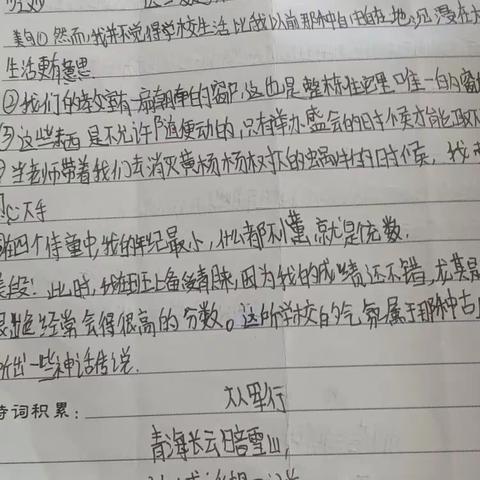 美句①然而,我并不觉得学校生活比我以前那种自由自在地沉浸在大
生活更有意思
②我们的教室有一扇朝的窗户,这也是整栋住宅里唯一的窗
③这些东西是不允许随便动的,只有举办盛会的时候才能取
当老师带着我们去消灭黄杨杨权下的蜗牛的时候,我
心大手
在四个侍童中,我的年纪最小,什么都不懂,就是充数.
美段:此时,我在班上备受青睐,因为我的成绩还不错,尤其是
经常会得很高的分数。这所学校的气氛属于那种古
一些神话传说.
诗词积累:
从军行
青海长云暗雪山,